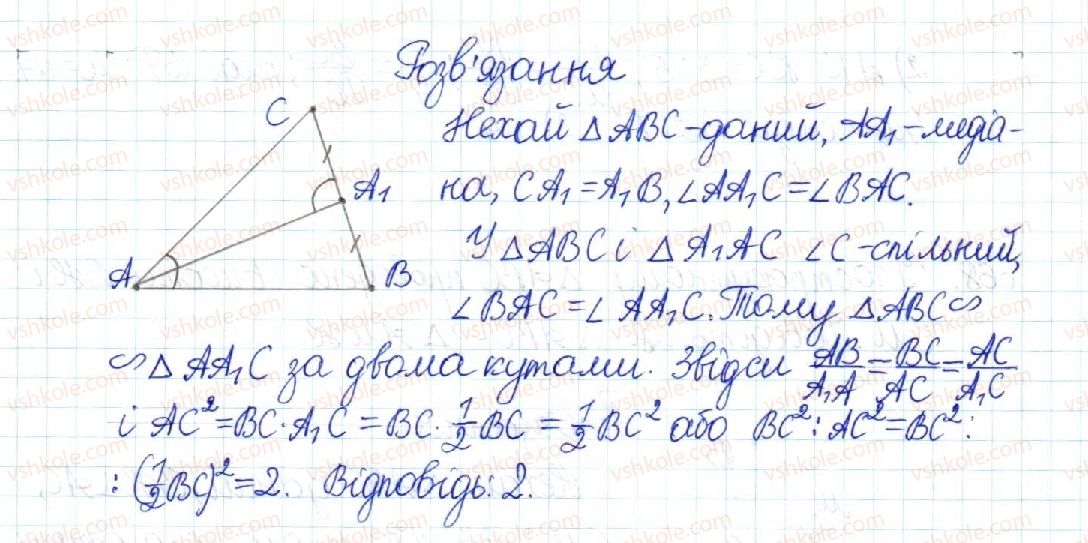 Розв'язання
C
A₁
A
B
Нехай △ABC-даний, AA₁-медіа-
на, CA₁=A₁B, ∠AA₁C=∠BAC.
У △ABC і △A₁AC ∠C-спільний,
∠BAC=∠AA₁C. Тому △ABC∽
∽△AA₁C за двома кутами. Звідси AB/A₁A=BC/AC=AC/A₁C
і AC²=BC·A₁C=BC·1/2BC=1/2BC² або BC²:AC²=BC²:
:(1/2BC)²=2. Відповідь: 2.